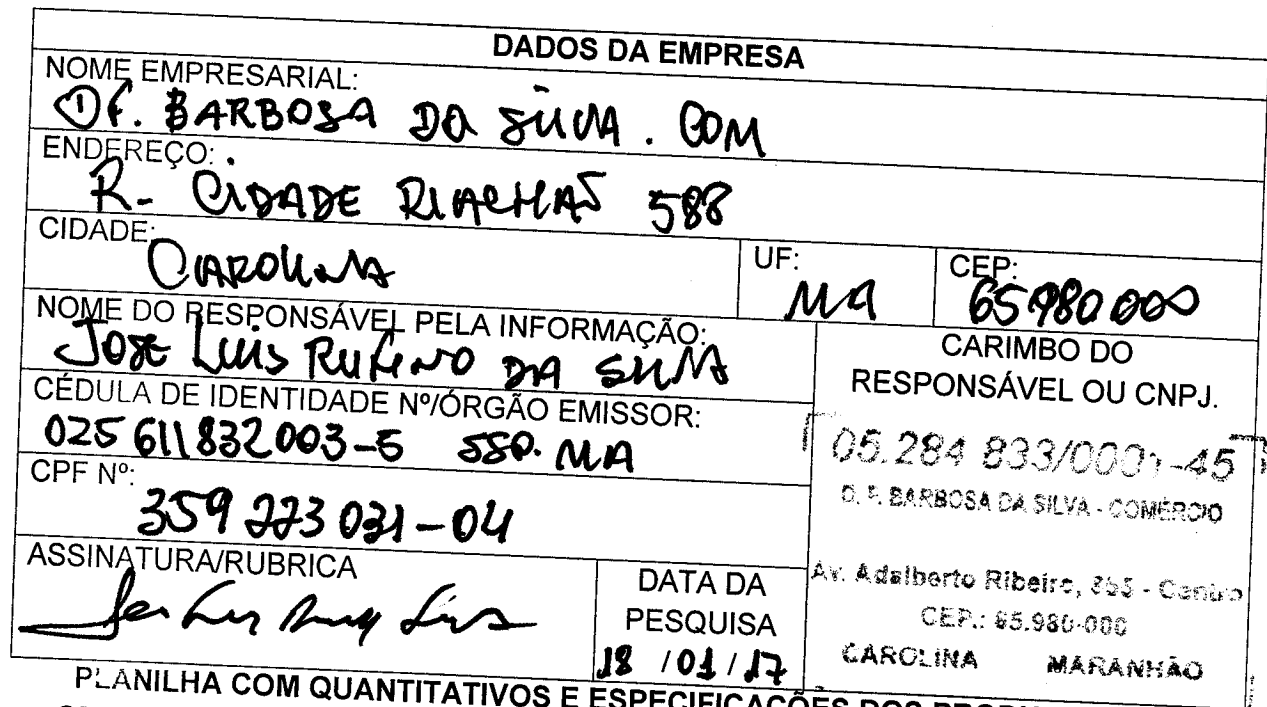 DADOS DA EMPRESA
NOME EMPRESARIAL:
D F. BARBOSA DA SILVA. COM
ENDEREÇO:
R- CIDADE RIACHAŠ 588
CIDADE:
CAROLINA
UF:
MA
CEP:
65980000
NOME DO RESPONSÁVEL PELA INFORMAÇÃO:
JOSE LUIS RUFINO DA SILVA
CÉDULA DE IDENTIDADE Nº/ÓRGÃO EMISSOR:
025611832003-5 SSP. MA
CPF Nº:
359 223 031-04
ASSINATURA/RUBRICA
DATA DA
PESQUISA
18 /01/17
CARIMBO DO
RESPONSÁVEL OU CNPJ.
05.284 833/0001-45
D. F. BARBOSA DA SILVA - COMÉRCIO
Av. Adalberto Ribeiro, - Centro
CEP.: 65.980-000
CAROLINA MARANHÃO
PLANILHA COM QUANTITATIVOS E ESPECIFICAÇÕES DOS